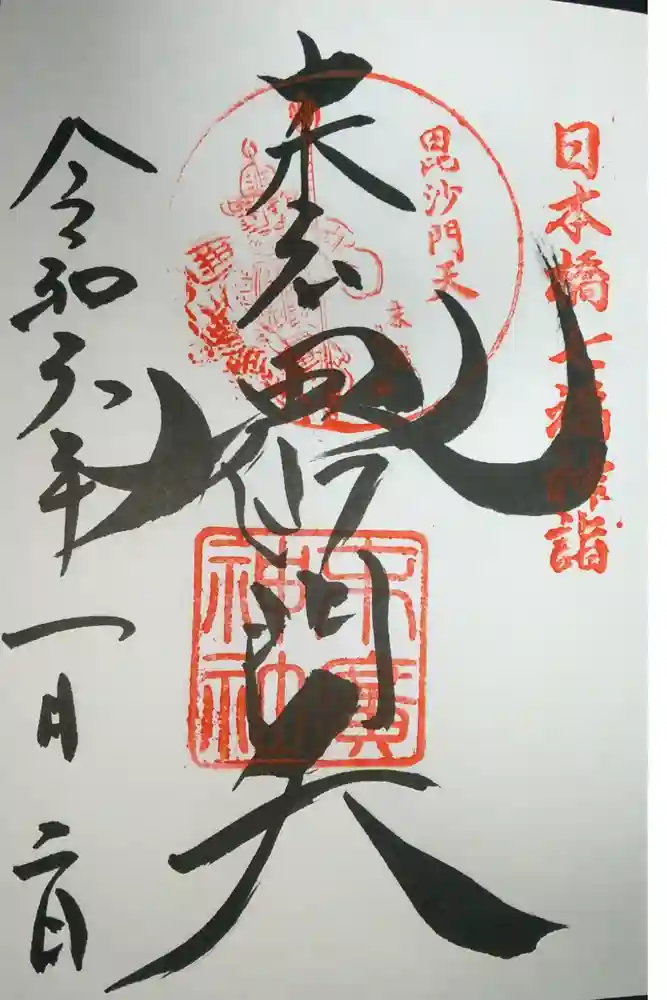 日本橋七福神詣
毘沙門天
末広毘沙門天
末廣
令和六年一月二日